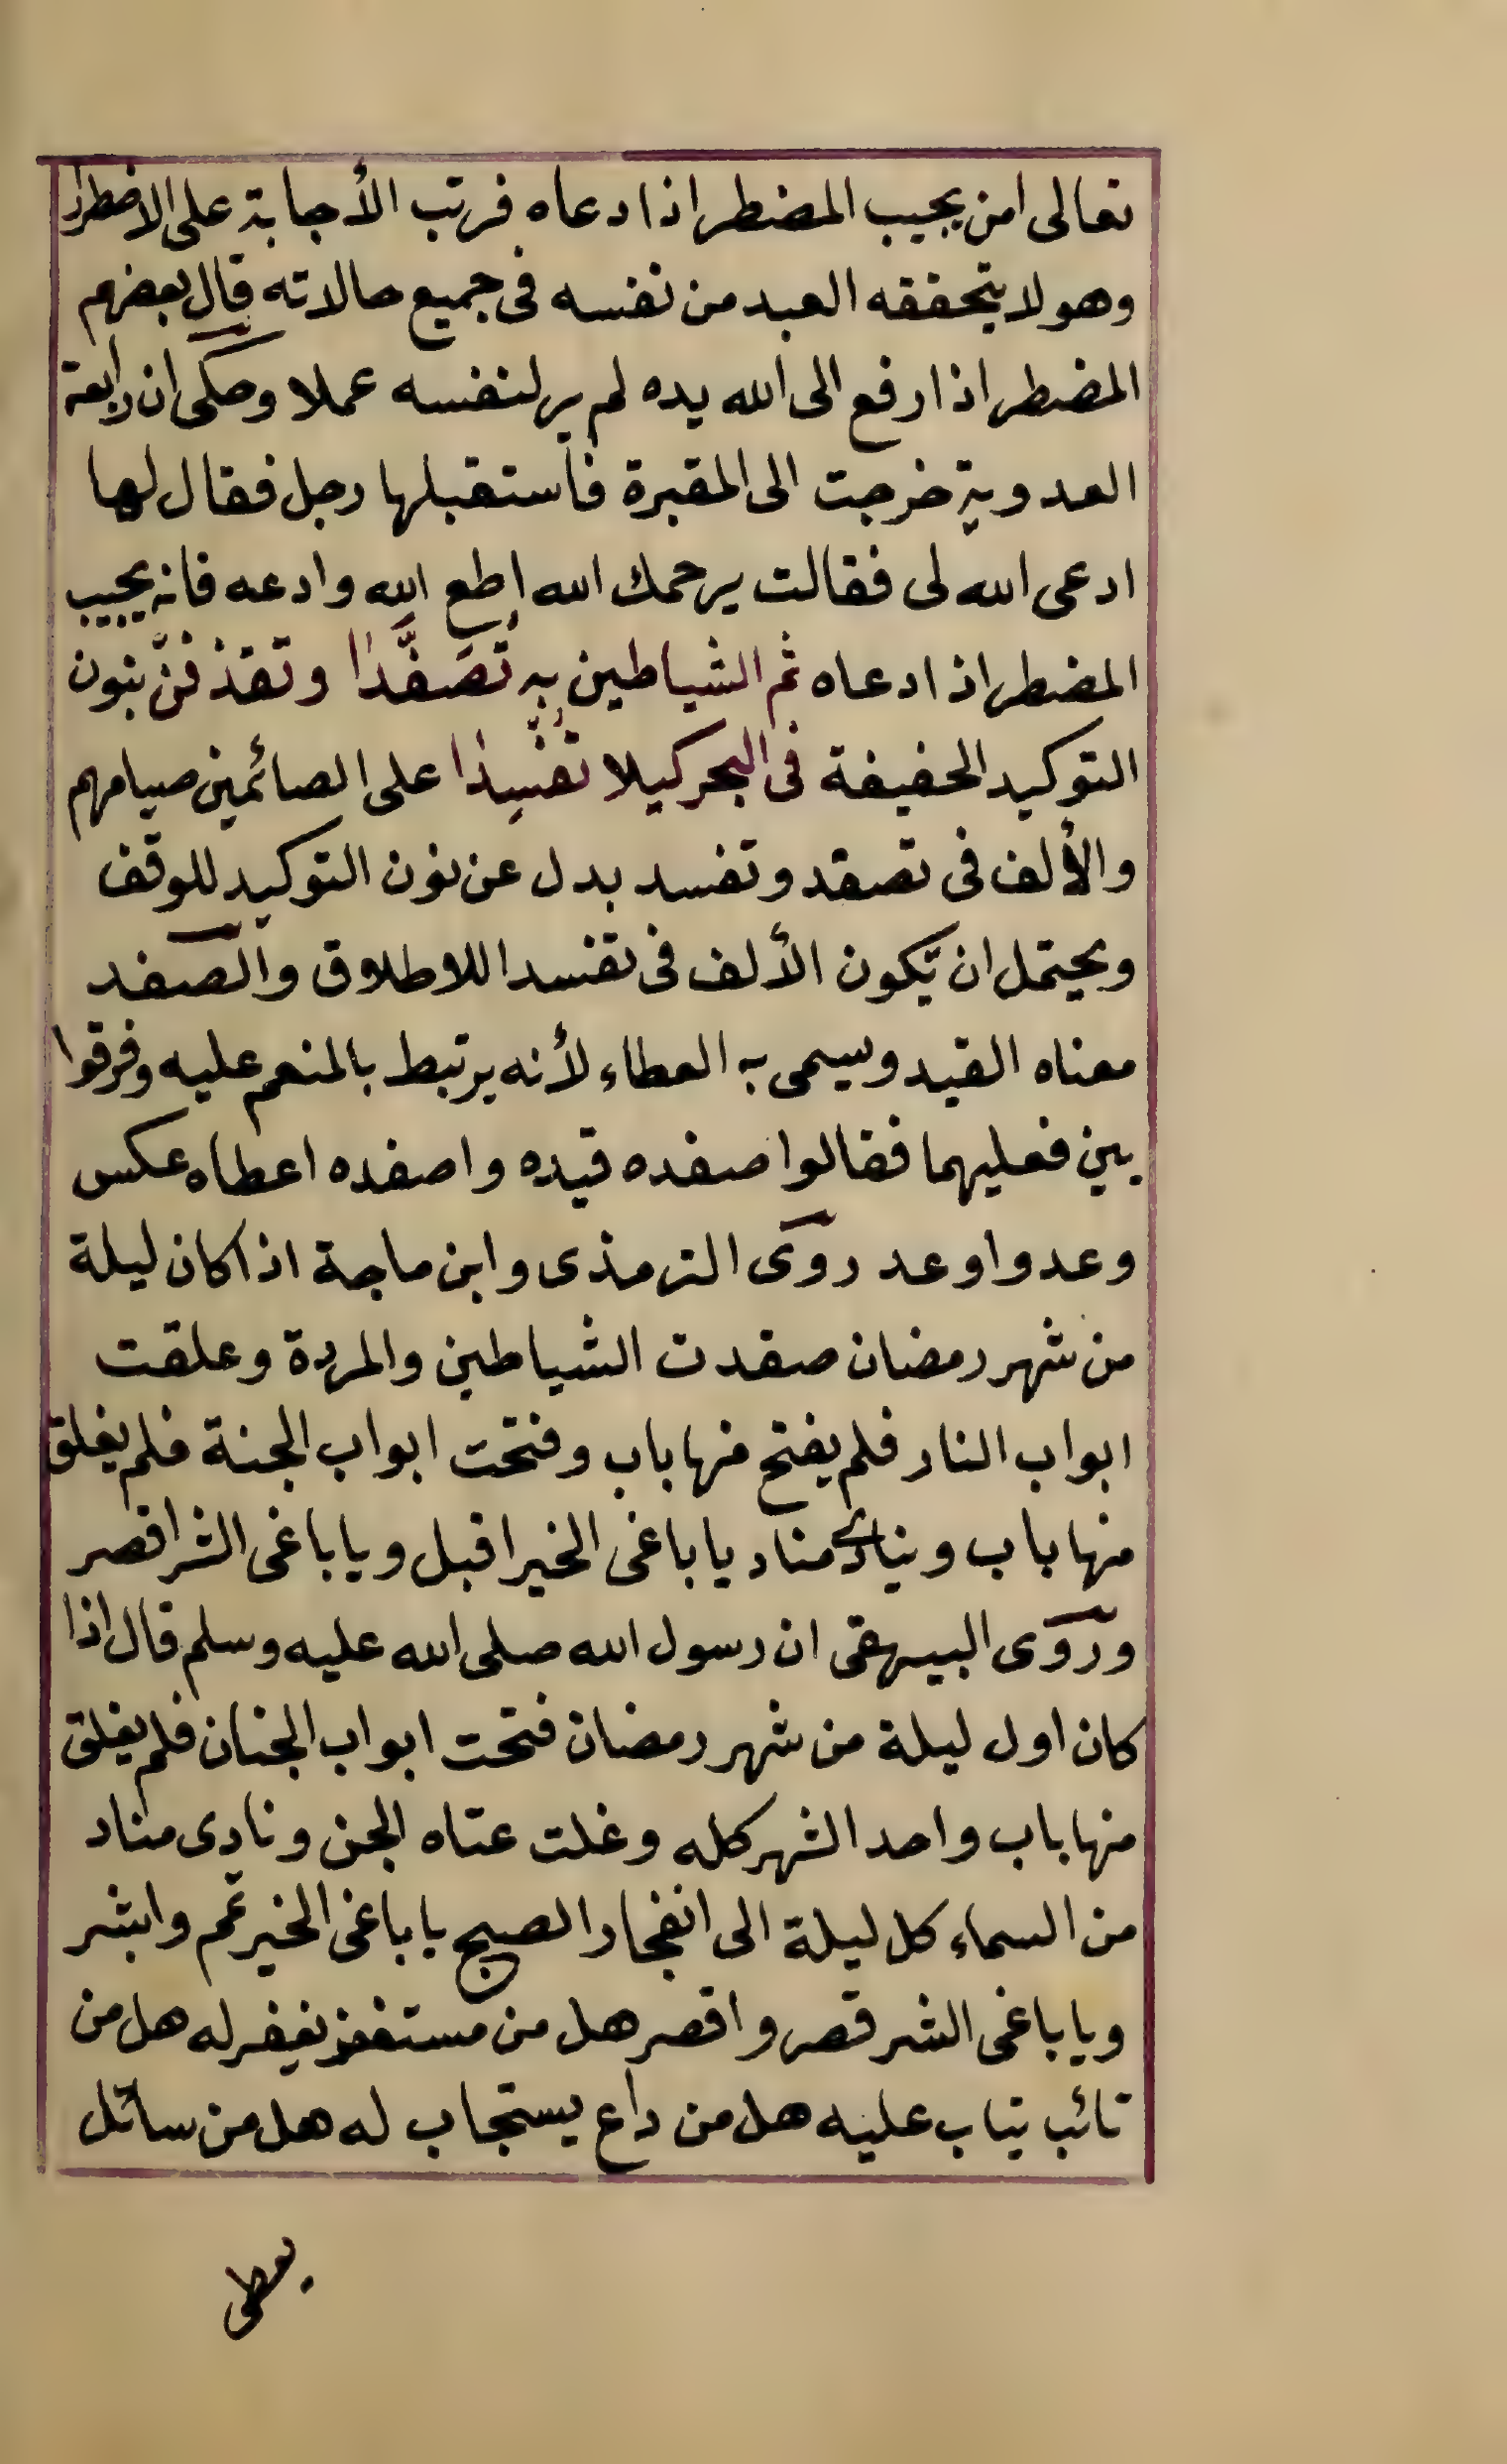 تعالى امن يجيب المضطر اذا دعاه فرتب الأجابة على الاضطرار
وهو لا يتحققه العبد من نفسه فى جميع حالاته قال بعضهم
المضطر اذا رفع الى الله يده لم ير لنفسه عملا وحكى ان رابعة
العدوية خرجت الى المقبرة فاستقبلها رجل فقال لها
ادعى الله لى فقالت يرحمك الله اطع الله وادعه فانه يجيب
المضطر اذا دعاه ثم الشياطين به تُصَفَّدا وتقذفنّ بنون
التوكيد الخفيفة فى البحر كيلا تُفْسِدا على الصائمين صيامهم
والألف فى تصفد وتفسد بدل عن نون التوكيد للوقف
ويحتمل ان يكون الألف فى تفسدا للاطلاق والصفد
معناه القيد ويسمى به العطاء لأنه يرتبط بالمنعم عليه وفرقوا
بين فعليهما فقالوا صفده قيده واصفده اعطاه عكس
وعد واوعد روى الترمذى وابن ماجة اذا كان ليلة
من شهر رمضان صفدت الشياطين والمردة وعلقت
ابواب النار فلم يفتح منها باب وفتحت ابواب الجنة فلم يغلق
منها باب وينادى مناد يا باغى الخير اقبل ويا باغى الشر اقصر
وروى البيهقى ان رسول الله صلى الله عليه وسلم قال اذا
كان اول ليلة من شهر رمضان فتحت ابواب الجنان فلم يغلق
منها باب واحد الشهر كله وغلت عتاه الجن ونادى مناد
من السماء كل ليلة الى انفجار الصبح يا باغى الخير تمم وابشر
ويا باغى الشر قصر واقصر هل من مستغفر نغفر له هل من
تائب يتاب عليه هل من داع يستجاب له هل من سائل
يعطى